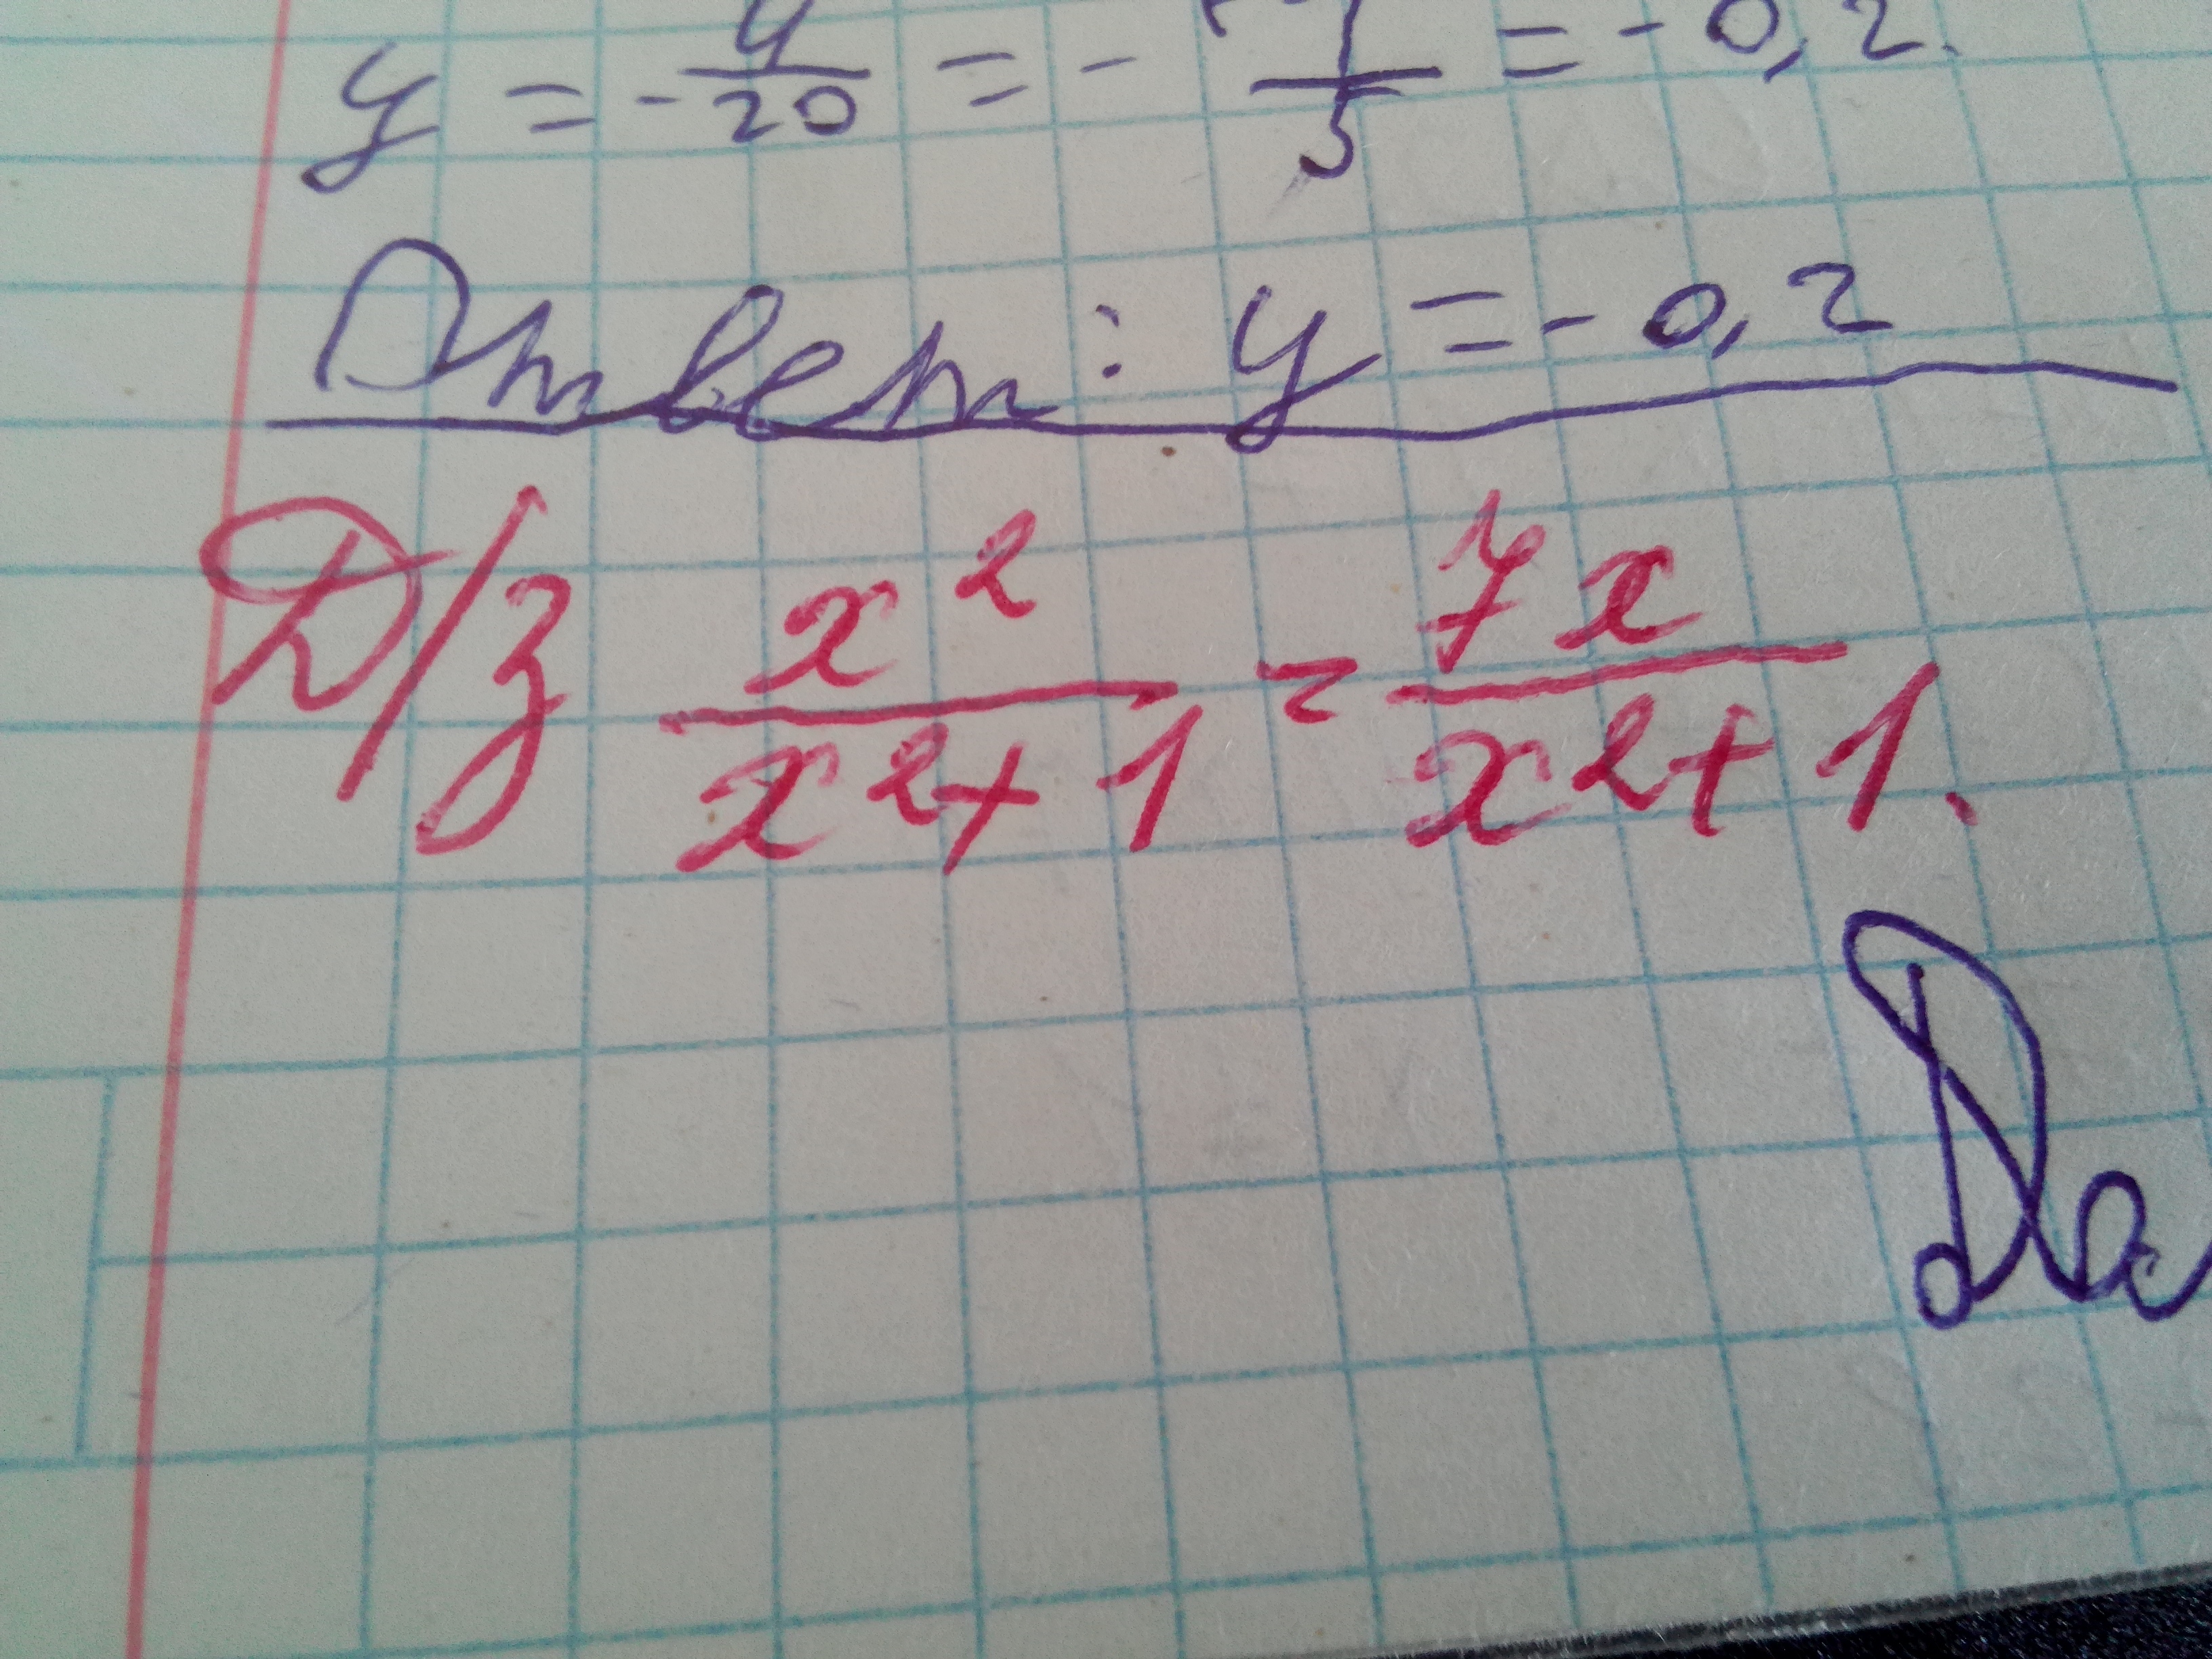 y = - 4/20 = - 1/5 = - 0,2.
Ответ: y = - 0,2
Д/з x²/(x²+1) = 7x/(x²+1).